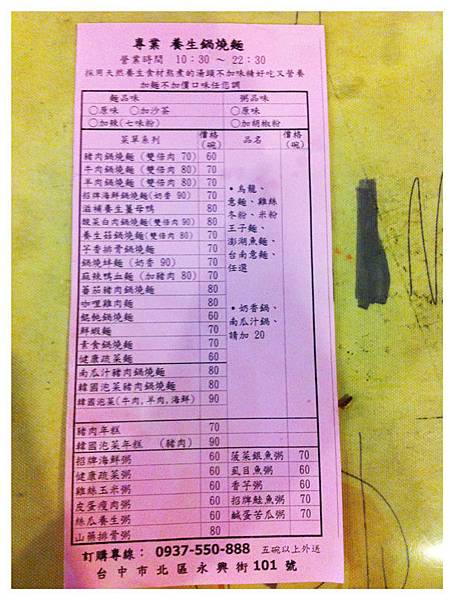 專業 養生鍋燒麵
營業時間 10:30 ～ 22:30
採用天然養生食材熬煮的湯頭不加味精好吃又營養
加麵不加價口味任您調
麵品味 粥品味
○原味 ○加沙茶 ○原味
○加辣(七味粉) ○加胡椒粉
菜單系列 價格(碗) 品名 價格(碗)
豬肉鍋燒麵 (雙倍肉 70) 60
牛肉鍋燒麵 (雙倍肉 80) 70
羊肉鍋燒麵 (雙倍肉 80) 70
招牌海鮮鍋燒麵(奶香 90) 70
滋補養生薑母鴨 80
酸菜白肉鍋燒麵(雙倍肉 90) 80
養生菇鍋燒麵(雙倍肉 80) 70
芋香排骨鍋燒麵 70
鍋燒蚌麵 (奶香 90) 70
麻辣鴨血麵 (加豬肉 80) 70
蕃茄豬肉鍋燒麵 80
咖哩雞肉麵 80
餛飩鍋燒麵 60
鮮蝦麵 70
素食鍋燒麵 70
健康蔬菜麵 60
南瓜汁豬肉鍋燒麵 80
韓國泡菜豬肉鍋燒麵 80
韓國泡菜(牛肉,羊肉,海鮮) 90
•烏龍、
意麵、雞絲
冬粉、米粉
王子麵、
澎湖魚麵、
台南意麵、
任選
•奶香鍋、
南瓜汁鍋、
請加 20
豬肉年糕 70
韓國泡菜年糕 (豬肉) 90
招牌海鮮粥 60 菠菜銀魚粥 70
健康蔬菜粥 60 虱目魚粥 60
雞絲玉米粥 60 香芋粥 60
皮蛋瘦肉粥 60 招牌鮭魚粥 70
絲瓜養生粥 60 鹹蛋苦瓜粥 70
山藥排骨粥 80
訂購專線： 0937-550-888 五碗以上外送
台中市北區永興街 101 號